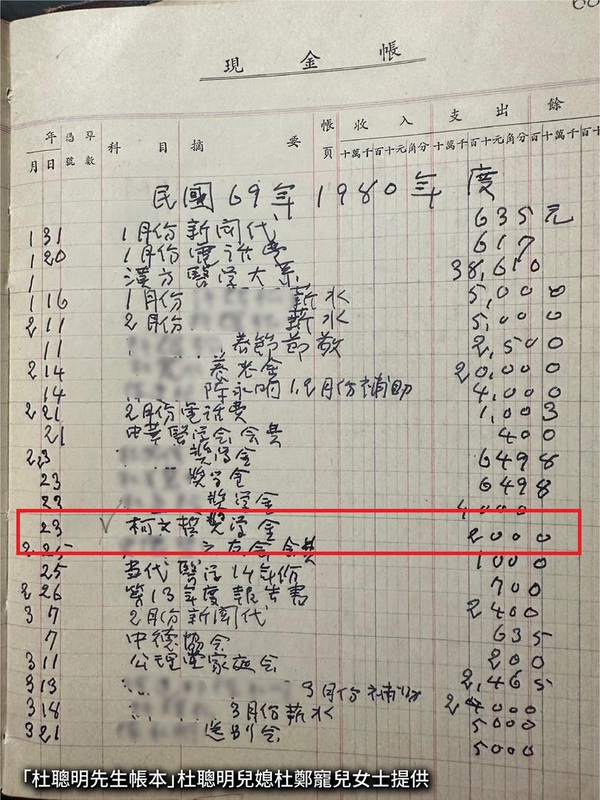 現金帳
年 月 日 憑單號數 科目 摘要 帳頁 收入 十萬千百十元角分 支出 十萬千百十元角分 餘 百十萬千百十
民國69年 1980年度
1 31 1月份新聞代 635元
1 20 1月份電話費 617
1 漢方醫学大系 38,610
1 16 1月份 薪水 5,000
2 11 2月份 薪水 5,000
11 春節節敬 2,500
2 14 養老金 20,000
14 1,2月份補助 4,000
2 21 2月份電話費 1,003
21 中華醫学会会費 400
2 23 獎学金 6498
23 獎学金 6498
23 獎学金 4000
23 柯文哲獎学金 2000
2 25 之友会会費 1000
25 當代醫学14年价 700
2 26 第13年度報告書 2400
3 7 2月份新聞代 635
7 中德協会 200
3 11 公理堂家庭会 2,465
3 13 3月份補助
3 18 3月份薪水 5000
3 21 送別会 5000
「杜聰明先生帳本」杜聰明兒媳杜鄭寵兒女士提供